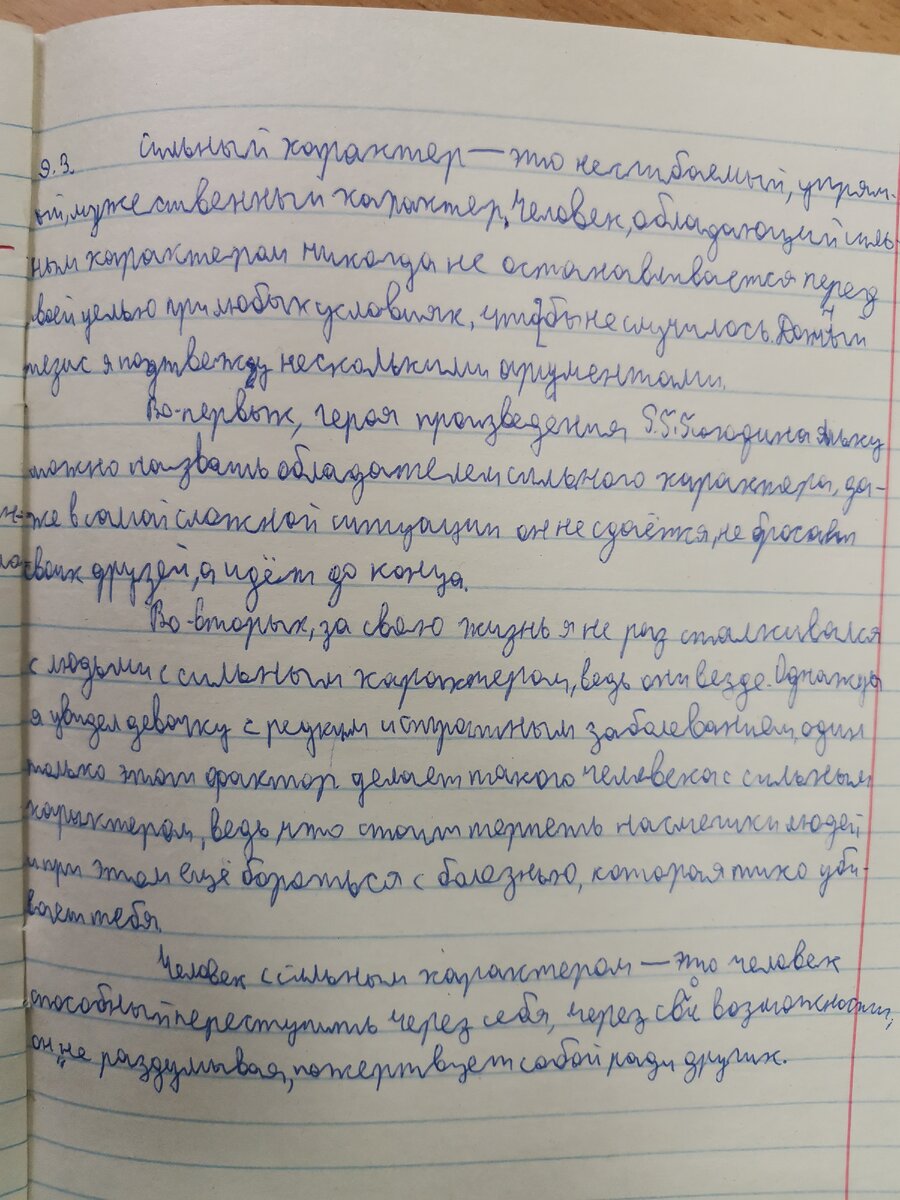 9.3. Сильный характер — это несгибаемый, упрям-
ый, мужественный характер. Человек, обладающий силь-
ным характером никогда не останавливается перед
своей целью при любых условиях, что бы не случилось. Данный
тезис я подтвежду несколькими аргументами.
Во-первых, героя произведения Яшку
можно назвать обладателем сильного характера, да-
же в самой сложной ситуации он не сдаётся, не бросает
своих друзей, а идёт до конца.
Во-вторых, за свою жизнь я не раз сталкивался
с людьми с сильным характером, ведь они везде. Однажды
я увидел девочку с редким и страшным заболеванием, один
только этот фактор делает такого человека с сильным
характером, ведь что стоит терпеть насмешки людей
и при этом ещё бороться с болезнью, которая тихо уби-
вает тебя.
Человек с сильным характером — это человек
способный переступить через себя, через свои возможности,
он не раздумывая, пожертвует собой ради других.